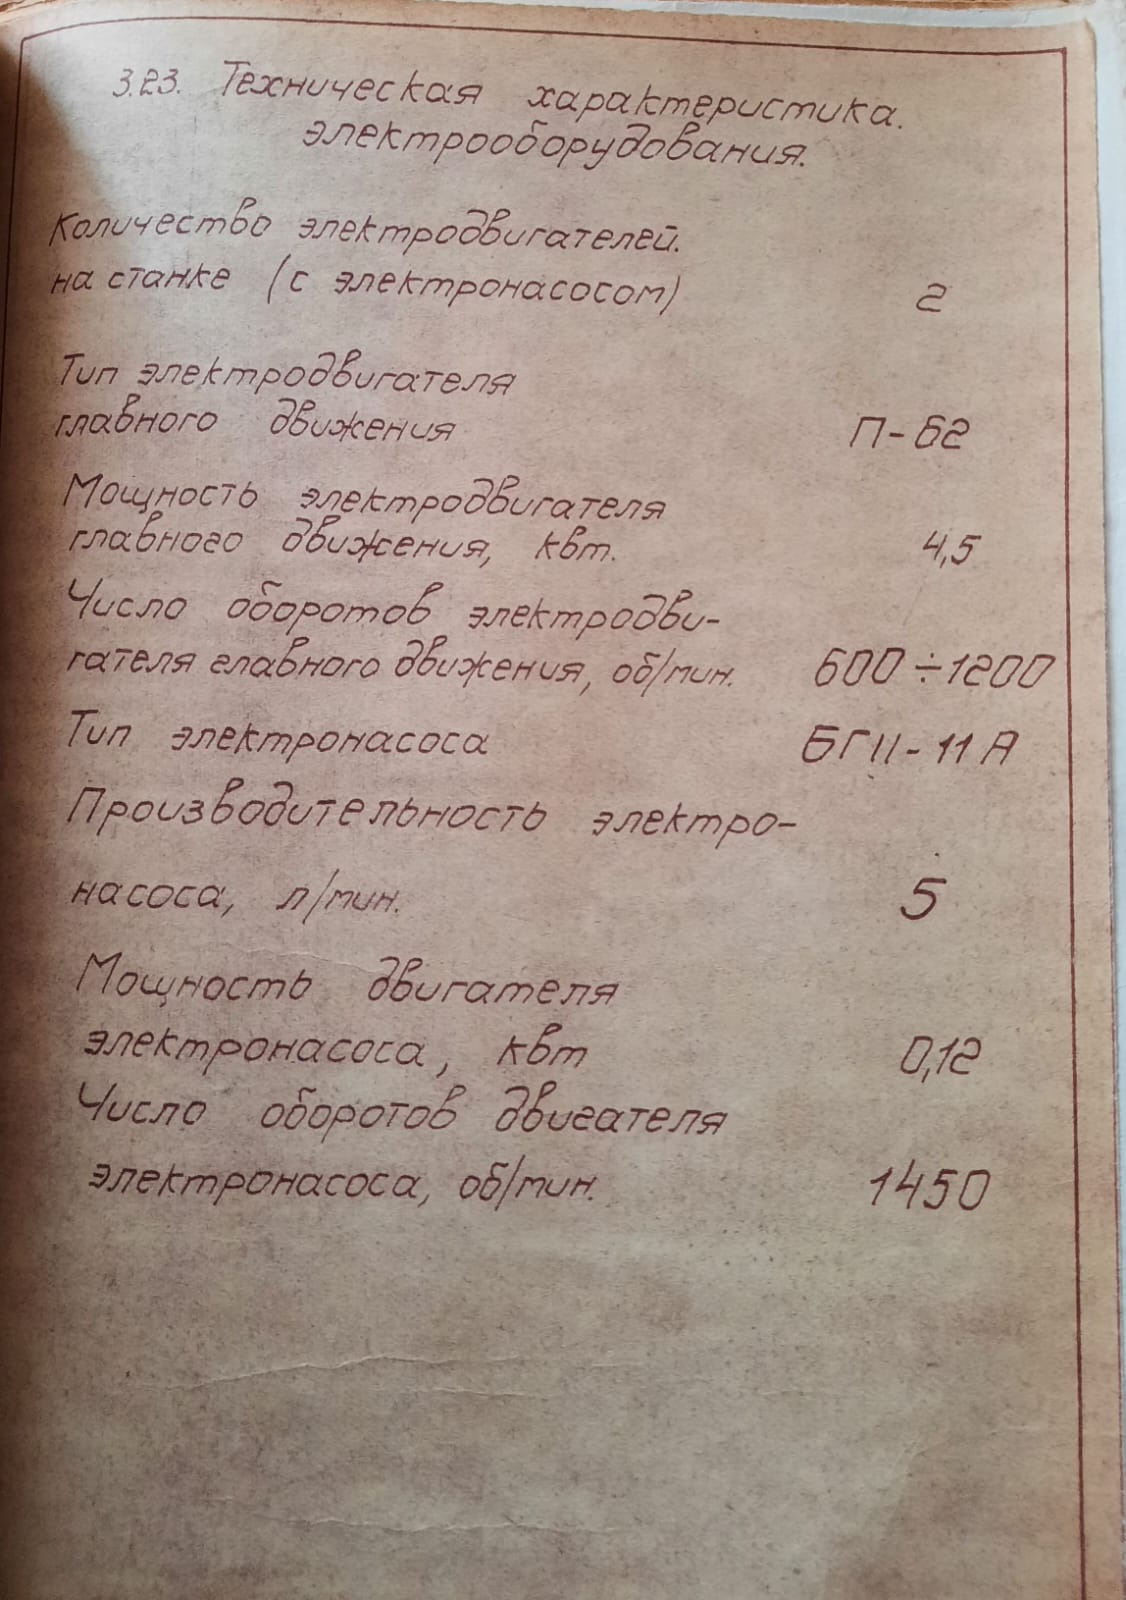 3.23. Техническая характеристика.
электрооборудования.
Количество электродвигателей.
на станке (с электронасосом) 2
Тип электродвигателя
главного движения П-62
Мощность электродвигателя
главного движения, квт. 4,5
Число оборотов электродви-
гателя главного движения, об/мин. 600÷1200
Тип электронасоса БГ11-11А
Производительность электро-
насоса, л/мин. 5
Мощность двигателя
электронасоса, квт 0,12
Число оборотов двигателя
электронасоса, об/мин. 1450